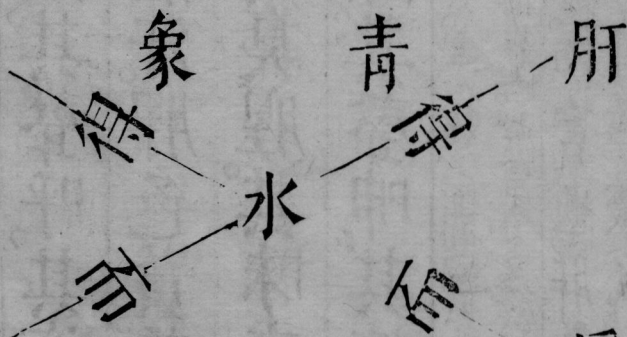 肝青象
得
得
水
而
而